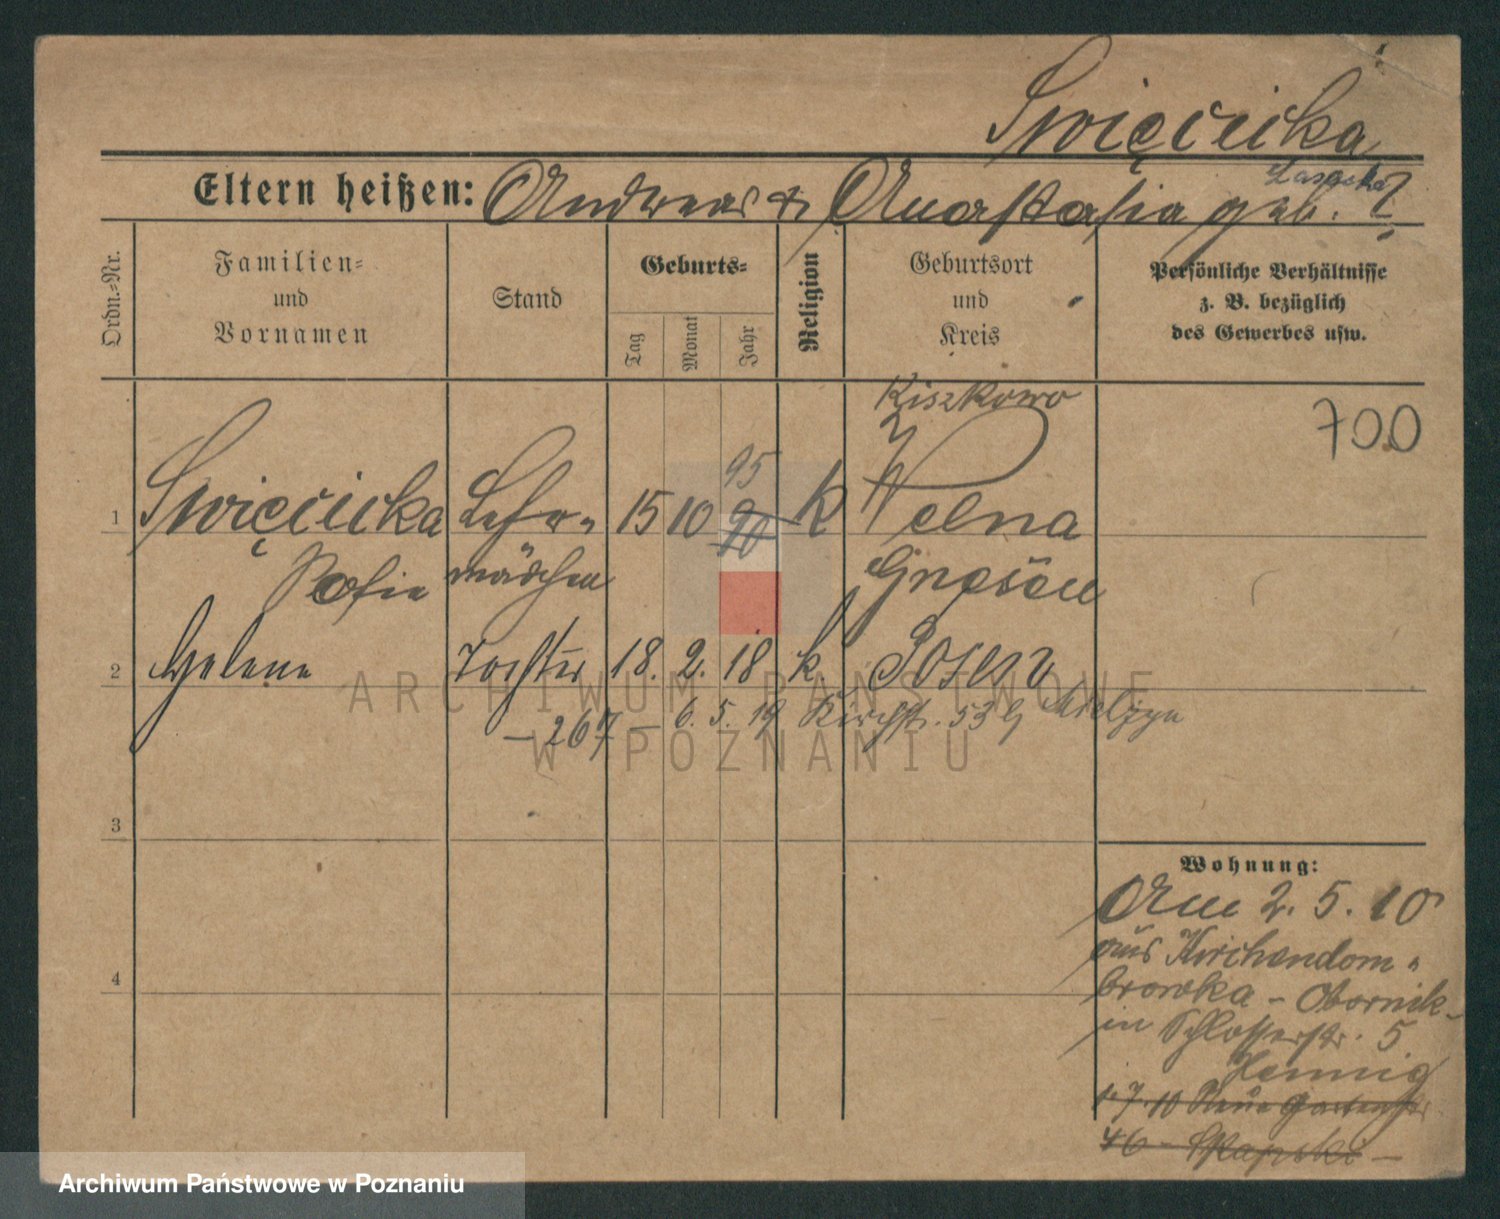 Święcicka
Eltern heißen: Andreas & Anastasia geb. ?
Ordn.-Nr.
Familien- und Vornamen
Stand
Geburts-
Tag
Monat
Jahr
Religion
Geburtsort und Kreis
Persönliche Verhältnisse
z. B. bezüglich
des Gewerbes usw.
Kiszkowo
700
95
1 Święcicka Lehr- 15 10 90 k Welna
Sofie mädchen Gnesen
2 Helene Tochter 18. 2. 18 k. Posen
– 267 – 6. 5. 19 Kirchst. 53
3
4
Wohnung:
Am 2. 5. 10
aus Kirchendom-
browka - Obornik-
in Schlosserstr. 5
Hennig
1.7.10 Neue Gartenstr
46 -
ARCHIWUM PAŃSTWOWE
W POZNANIU
Archiwum Państwowe w Poznaniu